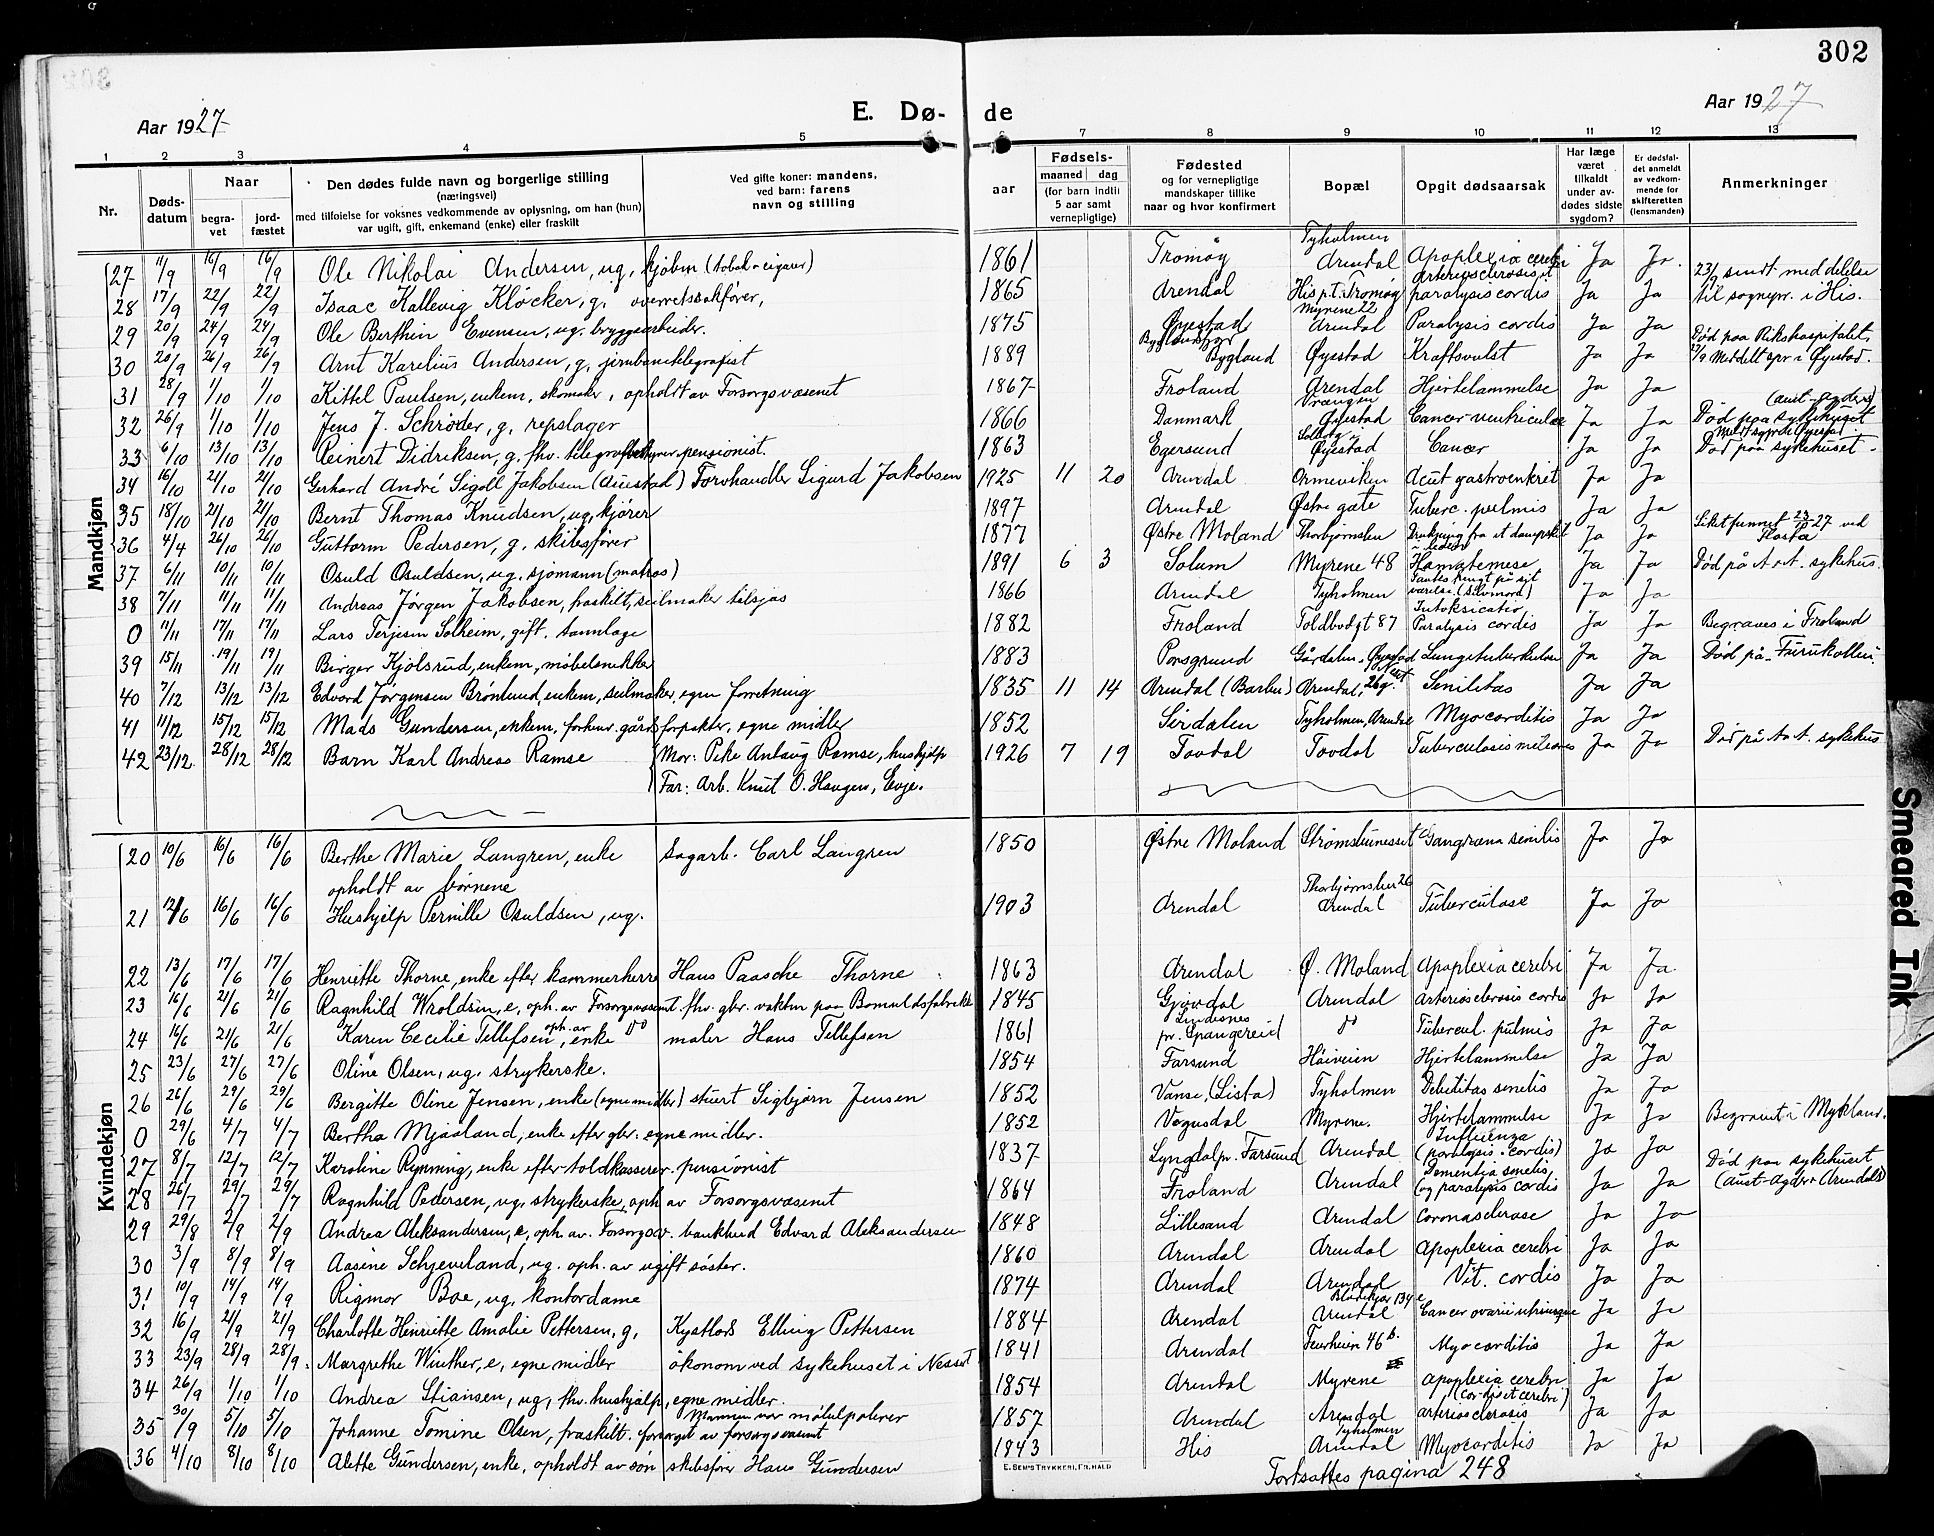 302
Aar 1927
E. Dø-
de
Aar 1927
1 2 3 4 5 6 7 8 9 10 11 12 13
Nr.
Døds-
datum
Naar
begra-
vet
jord-
fæstet
Den dødes fulde navn og borgerlige stilling
(næringsvei)
med tilføielse for voksnes vedkommende av oplysning, om han (hun)
var ugift, gift, enkemand (enke) eller fraskilt
Ved gifte koner: mandens,
ved barn: farens
navn og stilling
aar
Fødsels-
maaned dag
(for barn indtil
5 aar samt
vernepligtige)
Fødested
og for vernepligtige
mandskaper tillike
naar og hvor konfirmert
Bopæl
Opgit dødsaarsak
Har læge
været
tilkaldt
under av-
dødes sidste
sygdom?
Er dødsfal-
det anmeldt
av vedkom-
mende for
skifteretten
(lensmanden)
Anmerkninger
Mandkjøn
27 11/9 16/9 16/9 Ole Nikolai Andersen, ug, kjøbm (tobak-cigarer) 1861 Tromøy Tyholmen Arendal Apoplexia cerebri Ja Ja
28 17/9 22/9 22/9 Isaac Kallevig Kløcker, g, overretssakfører, 1865 Arendal His p.t. Tromøy Arteriosclerosis et paralysis cordis Ja Ja 23/9 sendt meddelelse til sognepr. i His.
29 20/9 24/9 24/9 Ole Berthin Evensen, ug. bryggearbeider. 1875 Øyestad Myrene 22 Arendal Paralysis cordis Ja Ja
30 20/9 26/9 26/9 Arnt Karelius Andersen, g, jernbanetelegrafist 1889 Bygland Øyestad Kraftsvulst Ja Ja Død paa Rikshospitalet, Meddelt spr i Øyestad.
31 28/9 1/10 1/10 Kittel Paulsen, enkem, skomaker, opholdt av Forsorgsvæsenet 1867 Froland Arendal Hjertelammelse Ja Ja
32 26/9 1/10 1/10 Jens J. Schrøder, g, repslager 1866 Danmark Vrengen Øyestad Cancer ventriculae Ja Ja Død paa sykehuset (Aust-Agders)
33 6/10 13/10 13/10 Reinert Didriksen, g, fhv. telegrafbestyrer, pensionist. 1863 Egersund Solborg Øyestad Cancer Ja Ja Død paa sykehuset
34 16/10 21/10 21/10 Gerhard André Sigoll Jakobsen (Auestad) Forvhandler Sigurd Jakobsen 1925 11 20 Arendal Ormeviken Acut gastroenterit Ja Ja
35 18/10 21/10 21/10 Bernt Thomas Knudsen, ug, kjører 1897 Arendal Østre gate Tuberc. pulmis Ja Ja
36 4/4 26/10 26/10 Guttorm Pedersen, g. skibsfører 1877 Østre Moland Thorbjørnsbu Drukning fra et dampskib Ja Ja Liket funnet 23/10 27 ved
37 6/11 10/11 10/11 Osuld Osuldsen, ug. sjømann (matros) 1891 6 3 Solum Myrene 48 Hamatemese Ja Ja Død på A.A. sykehus
38 7/11 11/11 11/11 Andreas Jørgen Jakobsen, fraskilt, seilmaker tilsjøs 1866 Arendal Tyholmen Fantes hengt på sit værelse (Selvmord) Ja Ja
0 11/11 17/11 17/11 Lars Terjesen Solheim, gift. tannlæge 1882 Froland Toldbodgt 87 Intoksicatio, Paralysis cordis Ja Ja Begraves i Froland
39 15/11 19/11 19/11 Birger Kjølsrud, enkem, møbelsnikker 1883 Porsgrund Gårdalen, Øyestad Lungetuberkulose Ja Ja Død på Furukollen.
40 7/12 13/12 13/12 Edvard Jørgensen Brønlund, enkem, seilmaker, egen forretning 1835 11 14 Arendal (Barbu) Arendal Senilitas Ja Ja
41 11/12 15/12 15/12 Mads Gundersen, enkem, forhenv. gårdsforpakter, egne midler 1852 Sirdalen Tyholmen, Arendal Myocarditis Ja Ja
42 23/12 28/12 28/12 Barn Karl Andreas Ramse Mor: Pike Anlaug Ramse, hushjelp 1926 7 19 Tovdal Tovdal Tuberculosis miliaris Ja Ja Død på A.A. sykehus
Far: Arb. Knut O. Haugen, Evje.
Kvindekjøn
20 10/6 16/6 16/6 Berthe Marie Langren, enke Sagarb. Carl Langren 1850 Østre Moland Strømsbunesset Gangræna senilis Ja Ja
opholdt av børnene
21 12/6 16/6 16/6 Hushjelp Pernille Osuldsen, ug. 1903 Arendal Thorbjørnsbu 26 Arendal Tuberculose Ja Ja
22 13/6 17/6 17/6 Henriette Thorne, enke efter kammerherre Hans Paasche Thorne 1863 Arendal Ø. Moland Apoplexia cerebri Ja Ja
23 16/6 21/6 21/6 Ragnhild Wroldsen, e, oph. av Forsorgsvæsenet. fhv. gbr. vakten paa Bomuldsfabrikk 1845 Gjøvdal Arendal Arteriosclerosis cordis Ja Ja
24 16/6 21/6 21/6 Karen Cecilie Tellefsen, enke oph. av do maler Hans Tellefsen 1861 Lindesnes pr. Spangereid do Tubercul. pulmis Ja Ja
25 23/6 27/6 27/6 Oline Olsen, ug. strykerske. 1854 Farsund Høiveien Hjertelammelse Ja Ja
26 26/6 29/6 29/6 Bergitte Oline Jensen, enke (egne midler) stuert Sigbjørn Jensen 1852 Vanse, (Lista) Tyholmen Debilitas senilis Ja Ja
0 29/6 4/7 4/7 Bertha Mjaaland, enke efter gbr. egne midler. 1852 Vegusdal Myrene. Hjertelammelse Ja Ja Begravet i Mykland.
27 8/7 12/7 12/7 Karoline Rynning, enke efter toldkasserer. pensionist 1837 Lyngdal pr. Farsund Arendal Influenza (paralysis cordis) Ja Ja
28 26/7 29/7 29/7 Ragnhild Pedersen, ug, strykerske, oph av Forsorgsvæsenet 1864 Froland Arendal Dementia senilis, og paralysis cordis Ja Ja Død paa sykehuset (Aust-Agder Arendal)
29 29/8 2/9 2/9 Andrea Aleksandersen, e, oph. av. Forsorgsv. bankbud Edvard Aleksandersen 1848 Lillesand Arendal Coronasclerose Ja Ja
30 3/9 8/9 8/9 Aasine Schjeveland, ug. oph. av ugift søster. 1860 Arendal Arendal Apoplexia cerebri Ja Ja
31 10/9 14/9 14/9 Rigmor Boe, ug, kontordame 1874 Arendal Arendal Vit. cordis Ja Ja
32 16/9 21/9 21/9 Charlotte Henriette Amalie Pettersen, g, Kystlods Elling Pettersen 1884 Arendal Arendal Cancer ovarii utriusque Ja Ja
33 23/9 28/9 28/9 Margrethe Winther, e, egne midler økonom ved sykehuset i Nesset 1841 Arendal 46 b. Myocarditis Ja Ja
34 26/9 1/10 1/10 Andrea Stiansen, ug, fhv. hushjelp, egne midler. 1854 Arendal Myrene apoplexia cerebri Ja Ja
35 30/9 5/10 5/10 Johanne Tomine Olsen, fraskilt. forsørget av forsorgsvæsenet Mannen var møbelpolerer 1857 Arendal Arendal arteriosclerosis (cordis et cerebri) Ja Ja
36 4/10 8/10 8/10 Alette Gundersen, enke, opholdt av søn skibsfører Hans Gundersen 1843 His Tyholmen Arendal Myocarditis Ja Ja
E. SEM'S TRYKKERI, FR.HALD
Fortsættes pagina 248
Smeared Ink